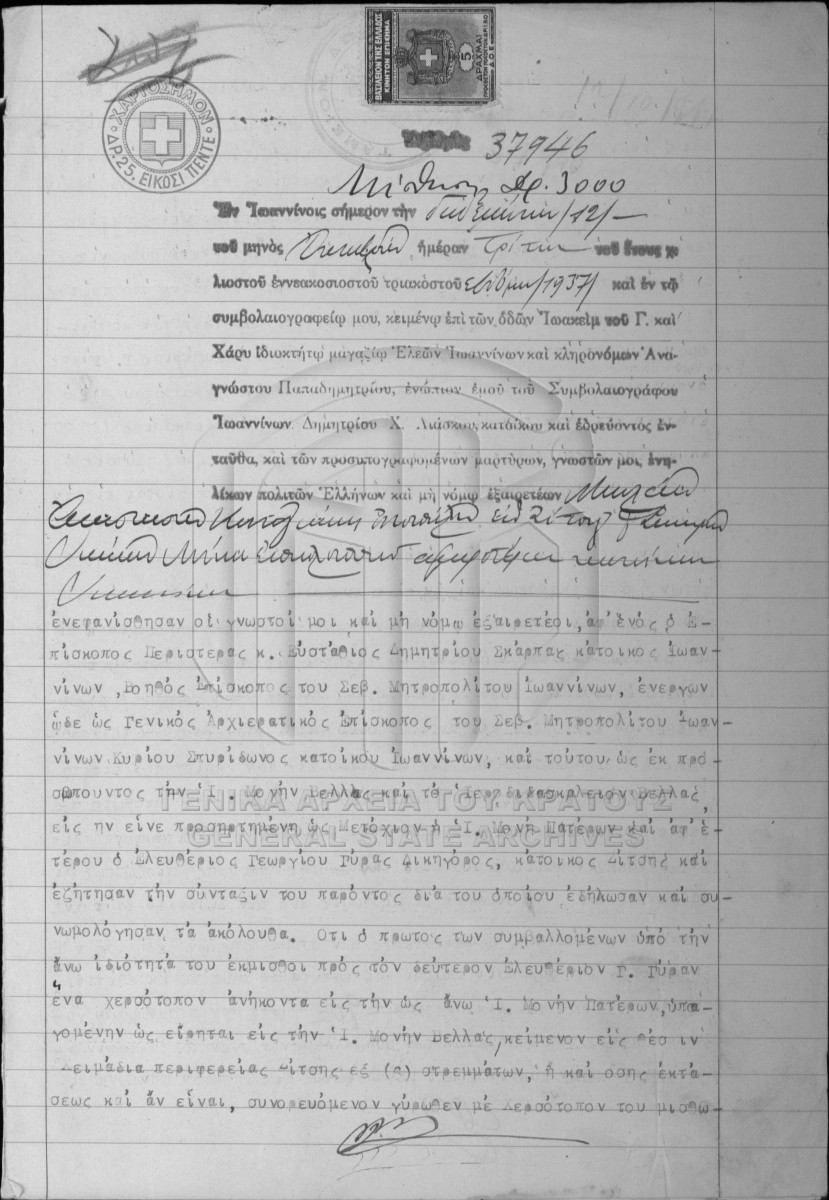 ΒΑΣΙΛΕΙΟΝ ΤΗΣ ΕΛΛΑΔΟΣ
ΚΙΝΗΤΟΝ ΕΠΙΣΗΜΑ
5
ΔΡΑΧΜΑΙ
ΧΑΡΤΟΣΗΜΟΝ
ΔΡ. 25. ΕΙΚΟΣΙ ΠΕΝΤΕ
37946
Μίσθωσις Δρ. 3000
Ἐν Ἰωαννίνοις σήμερον τὴν δωδεκάτην /12/
τοῦ μηνὸς ἡμέραν Τρίτην τοῦ ἔτους χι
λιοστοῦ ἐννεακοσιοστοῦ τριακοστοῦ ἑβδόμου /1937/ καὶ ἐν τῷ
συμβολαιογραφείῳ μου, κειμένῳ ἐπὶ τῶν ὁδῶν Ἰωακεὶμ τοῦ Γ. καὶ
Χάρυ ἰδιοκτήτῳ μαγαζίῳ Ἐλεῶν Ἰωαννίνων καὶ κληρονόμων Ἀνα-
γνώστου Παπαδημητρίου, ἐνώπιον ἐμοῦ τοῦ Συμβολαιογράφου
Ἰωαννίνων Δημητρίου Χ. Λιάσκου, κατοίκου καὶ ἑδρεύοντος ἐν-
ταῦθα, καὶ τῶν προσυπογραφομένων μαρτύρων, γνωστῶν μοι, ἐνη-
λίκων πολιτῶν Ἑλλήνων καὶ μὴ νόμῳ ἐξαιρετέων
ἐνεφανίσθησαν οἱ γνωστοί μοι καὶ μὴ νόμῳ ἐξαιρετέοι, ἀφ'ἑνός ὁ Ἐ-
πίσκοπος Περιστερᾶς κ. Εὐστάθιος Δημητρίου Σκάρπας κάτοικος Ἰωαν-
νίνων, Βοηθός Ἐπίσκοπος τοῦ Σεβ. Μητροπολίτου Ἰωαννίνων, ἐνεργῶν
ὧδε ὡς Γενικός Ἀρχιερατικός Ἐπίσκοπος τοῦ Σεβ. Μητροπολίτου Ἰωαν-
νίνων Κυρίου Σπυρίδωνος κατοίκου Ἰωαννίνων, καί τούτου ὡς ἐκ προ-
σωπουντος τήν Ἱ. Μονήν Βελλᾶς καί τό Ἱεροδιδασκαλεῖον Βελλᾶς,
εἰς ἥν εἶνε προσηρτημένη ὡς Μετόχιον ἡ Ἱ. Μονή Πατέρων καί ἀφ'ἑ-
τέρου ὁ Ἐλευθέριος Γεωργίου Γύρας Δικηγόρος, κάτοικος Ζίτσης καί
ἐζήτησαν τήν σύνταξιν τοῦ παρόντος διά τοῦ ὁποίου ἐδήλωσαν καί συ-
νωμολόγησαν τά ἀκόλουθα. Ὅτι ὁ πρῶτος τῶν συμβαλλομένων ὑπό τήν
ἄνω ἰδιότητά του ἐκμισθοῖ πρός τόν δεύτερον Ἐλευθέριον Γ. Γύραν
ἕνα χερσότοπον ἀνήκοντα εἰς τήν ὡς ἄνω Ἱ. Μονήν Πατέρων, ὑπα-
γομένην ὡς εἴρηται εἰς τήν Ἱ. Μονήν Βελλᾶς, κείμενον εἰς θέσιν
Λειμάδια περιφερείας Ζίτσης ἐξ στρεμμάτων, ἤ καί ὅσης ἐκτά-
σεως καί ἄν εἶναι, συνορευόμενον γύρωθεν μέ χερσότοπον τοῦ μισθω-
ΓΕΝΙΚΑ ΑΡΧΕΙΑ ΤΟΥ ΚΡΑΤΟΥΣ
GENERAL STATE ARCHIVES